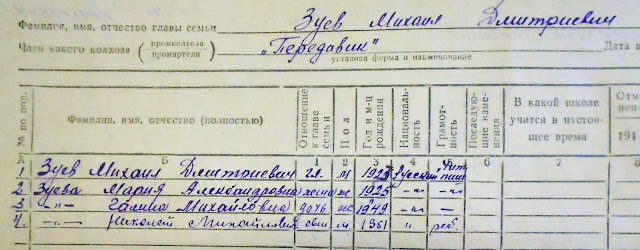 Фамилия, имя, отчество главы семьи Зуев Михаил Дмитриевич
Член какого колхоза (промколхоза промартели) „Передовик" Дата в
уставная форма и наименование
№ по пор. Фамилия, имя, отчество (полностью) Отношение к главе семьи Пол Год и м-ц рождения Националь-ность Грамот-ность Последую-щие изме-нения В какой школе учится в настоя-щее время Отм
194
А Б 1 2 3 4 5 6 7 8
1 Зуев Михаил Дмитриевич гл. м 1923 русский
2 Зуева Мария Александровна жена ж 1925 -"- -"-
3 -"- Галина Михайловна дочь ж 1949 -"- —
4. -"- Николай Михайлович сын м. 1951 " реб.